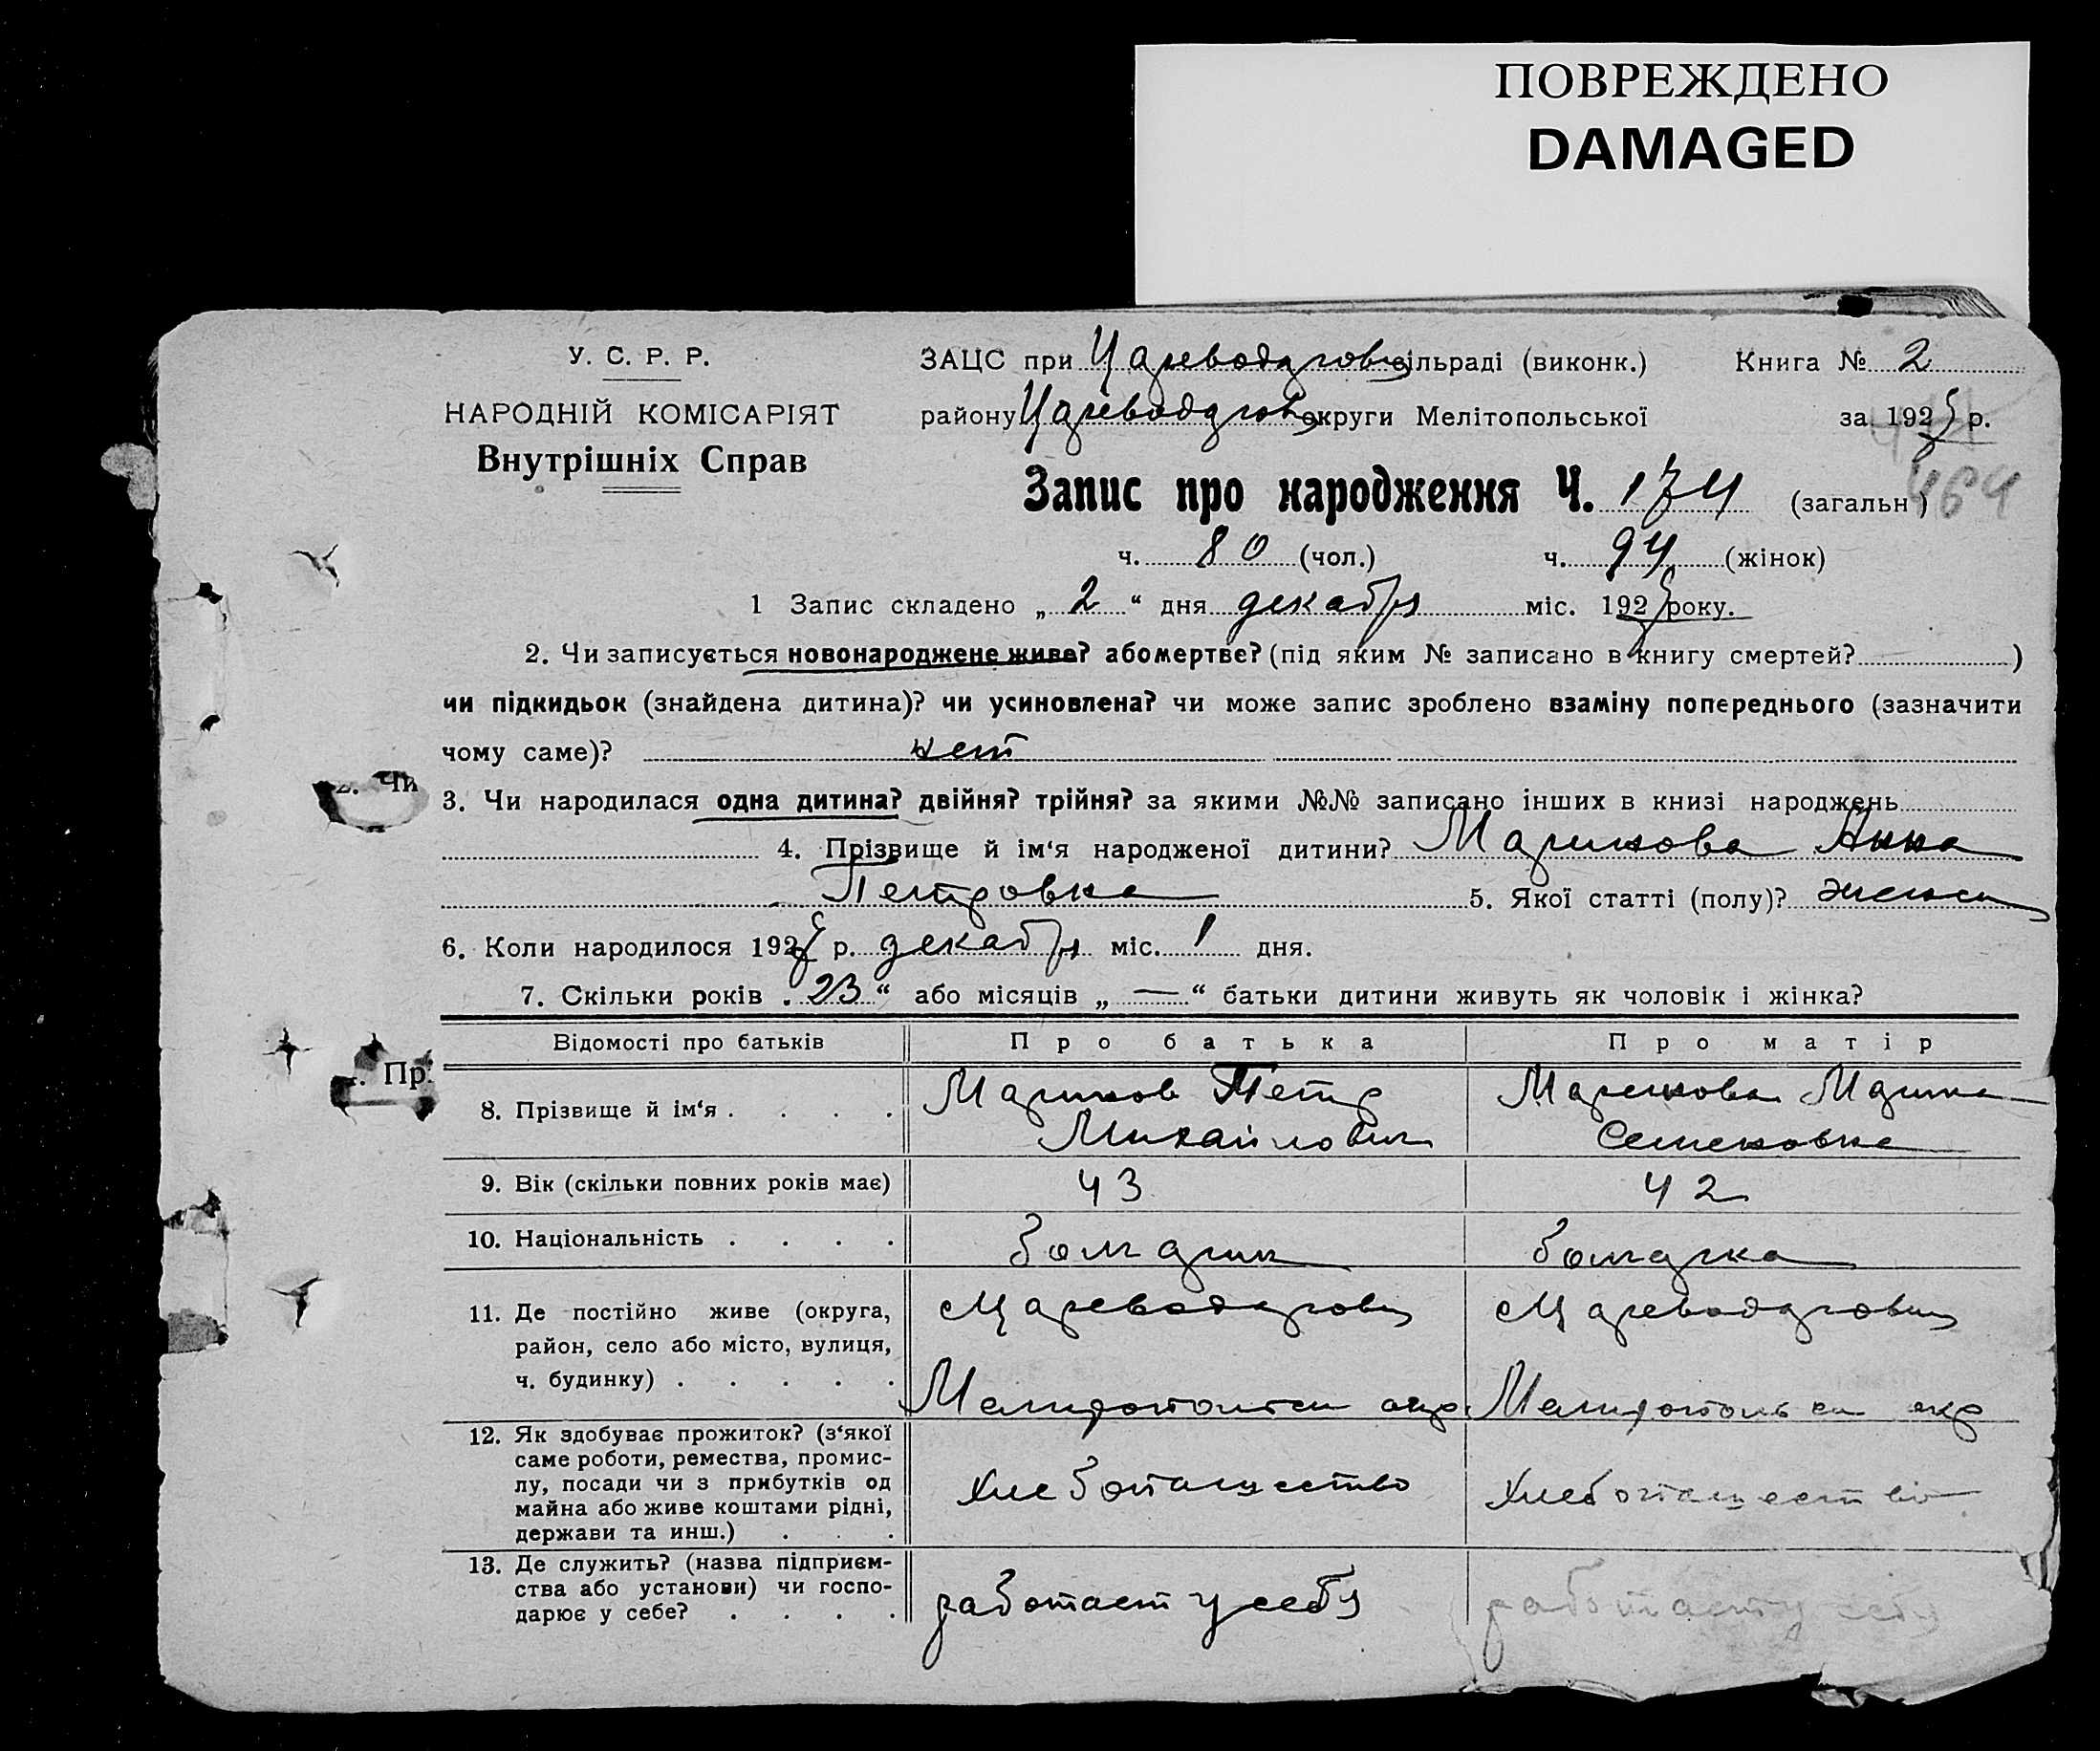 ПОВРЕЖДЕНО
DAMAGED
У. С. Р. Р.
НАРОДНІЙ КОМІСАРІЯТ
Внутрішніх Справ
ЗАЦС при Цареводаровск сільраді (виконк.) Книга № 2
району Цареводаровск округи Мелітопольської за 1925 р.
Запис про народження Ч. 174 (загальн)
464
ч. 80 (чол.) ч. 94 (жінок)
1 Запис складено „ 2 “ дня декабря міс. 1925 року.
2. Чи записується новонароджене живе? або мертве? (під яким № записано в книгу смертей? )
чи підкидьок (знайдена дитина)? чи усиновлена? чи може запис зроблено взаміну попереднього (зазначити
чому саме)? нет
2. Чи
3. Чи народилася одна дитина? двійня? трійня? за якими №№ записано інших в книзі народжень
4. Прізвище й ім‘я народженої дитини? Маринова Анна
Петровна 5. Якої статті (полу)? женск
6. Коли народилося 1925 р. декабря міс. 1 дня.
7. Скільки років „ 23 “ або місяців „ — “ батьки дитини живуть як чоловік і жінка?
Відомості про батьків Про батька Про матір
. Пр
8. Прізвище й ім‘я . . . . Маринов Петр Маринова Марина
Михайлович Семеновна
9. Вік (скільки повних років має) 43 42
10. Національність . . . . болгарин болгарка
11. Де постійно живе (округа, район, село або місто, вулиця, ч. будинку) . . . . . с Цареводаровка с Цареводаровка
Мелитопольск окр. Мелитопольск окр
12. Як здобуває прожиток? (з‘якої саме роботи, ремества, промис-
лу, посади чи з прибутків од
майна або живе коштами рідні,
держави та инш.) . . . Хлебопашество Хлебопашество
13. Де служить? (назва підприєм-
ства або установи) чи госпо-
дарює у себе? . . . . работает у себя работает у себя